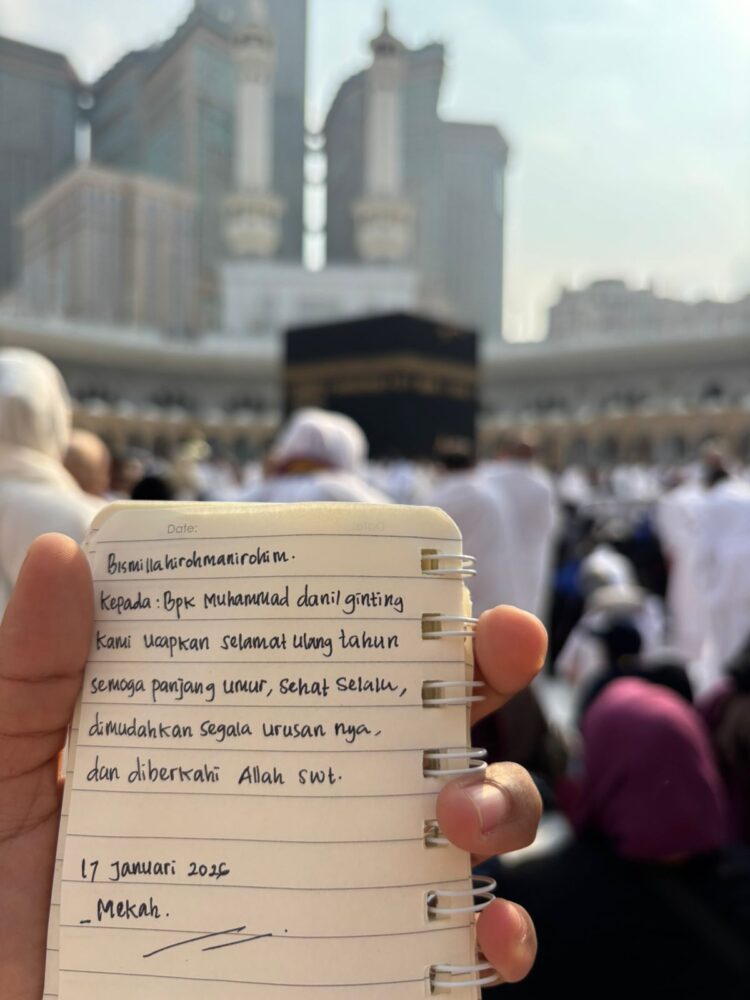 Date:
Bismillahirohmanirohim.
Kepada : Bpk Muhammad danil ginting
Kami ucapkan selamat ulang tahun
semoga panjang umur, sehat selalu,
dimudahkan segala urusan nya,
dan diberkahi Allah swt.
17 Januari 2026
_Mekah.